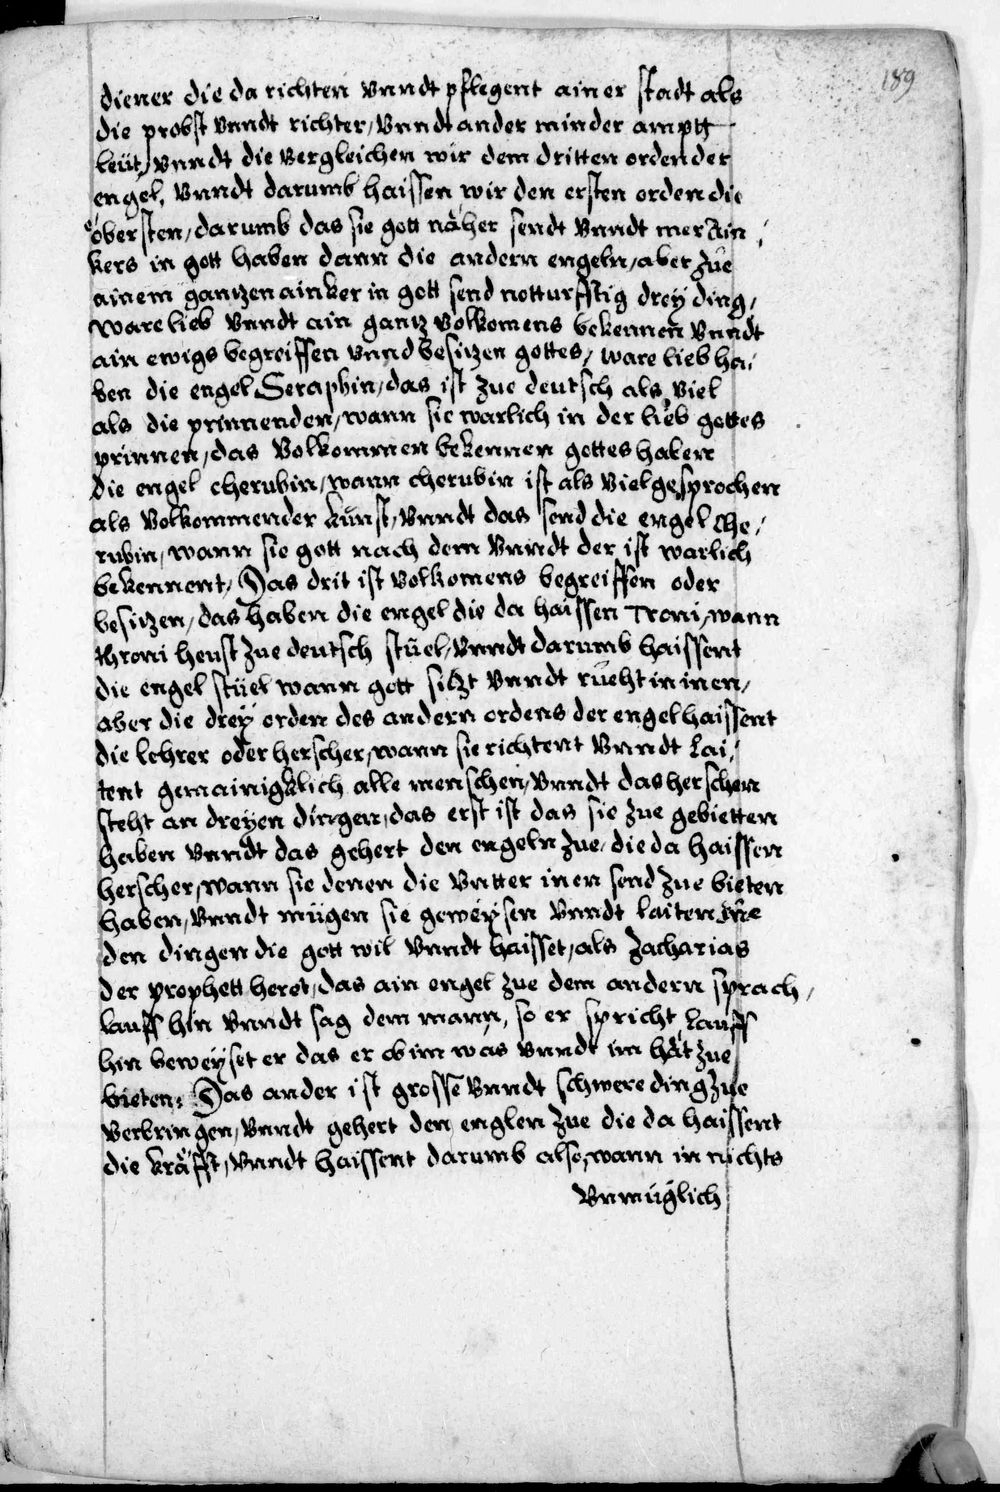 189
diener die da richten vnndt pflegent ainer stadt als
die probst vnndt richter, vnndt ander minder amptt
leüt, vnndt die vergleichen wir dem dritten orden der
engel, vnndt darumb haissen wir den ersten orden die
öbersten, darumb das sie gott näher sendt vnndt mer Ain-
kers in gott haben dann die andern engeln, aber zue
ainem gantzen ainker in gott send notturfftig drey ding,
ware lieb vnndt ain gantz volkomens bekennen vnndt
ain ewigs begreiffen vnnd besitzen gottes, ware lieb ha-
ben die engel Seraphin, das ist zue deutsch als viel
als die prinnenden, wann sie warlich in der lieb gottes
prinnen, das volkommen bekennen gottes haben
die engel cherubin, wann cherubin ist als viel gesprochen
als volkommender kunst, vnndt das send die engel che-
rubin, wann sie gott nach dem vnndt der ist warlich
bekennent, Das drit ist volkomens begreiffen oder
besitzen, das haben die engel die da haissen Troni, wann
throni heust zue deutsch stüel, vnndt darumb haissent
die engel stüel wann gott sitzt vnndt rueht in inen,
aber die drey orden des andern ordens der engel haissent
die lehrer oder herscher, wann sie richtent vnndt lai-
tent gemainigklich alle menschen, vnndt das herschen
steht an dreyen dingen, das erst ist das sie zue gebietten
haben vnndt das gehert den engeln zue, die da haissen
herscher, wann sie denen die vntter inen send zue bieten
haben, vnndt mügen sie geweysen vnndt laiten zue
den dingen die gott wil vnndt haisset, als Zacharias
der prophett heret, das ain engel zue dem andern sprach,
lauff hin vnndt sag dem mann, so er spricht lauff
hin beweyset er das er ob im was vnndt im hät zue
bieten, Das ander ist grosse vnndt schwere ding zue
verbringen, vnndt gehert den englen zue die da haissent
die kräfft, vnndt haissent darumb also, wann in nichts
vnmüglich